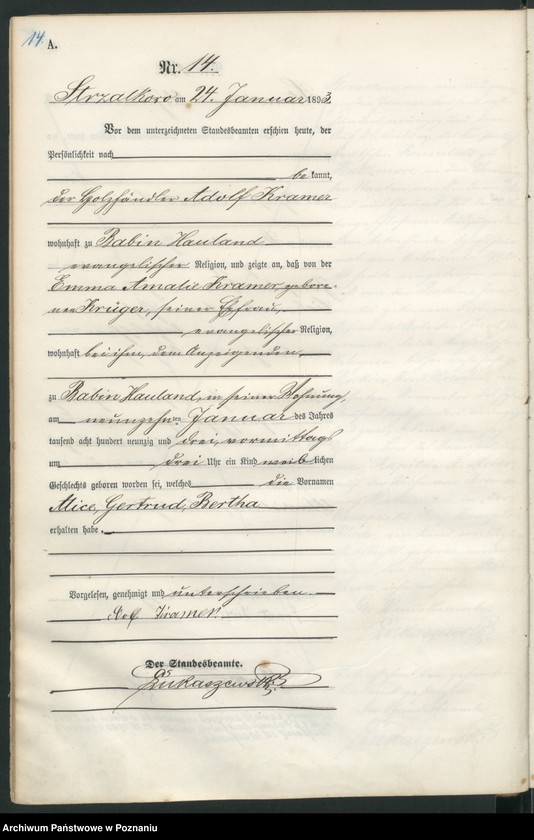 14.
A.
Nr. 14.
Strzalkowo am 24. Januar 1893.
Vor dem unterzeichneten Standesbeamten erschien heute, der
Persönlichkeit nach
be kannt,
der Holzhändler Adolf Kramer
wohnhaft zu Babin Hauland
evangelischer Religion, und zeigte an, daß von der
Emma Amalie Kramer gebore-
nen Krüger, seiner Ehefrau,
evangelischer Religion,
wohnhaft bei ihm, dem Anzeigenden,
zu Babin Hauland, in seiner Wohnung,
am neunzehnten Januar des Jahres
tausend acht hundert neunzig und drei, vormittags
um drei Uhr ein Kind weiblichen
Geschlechts geboren worden sei, welches die Vornamen
Alice, Gertrud, Bertha
erhalten habe.
Vorgelesen, genehmigt und unterschrieben.
Kramer
Der Standesbeamte.
Łukaszewski
Archiwum Państwowe w Poznaniu